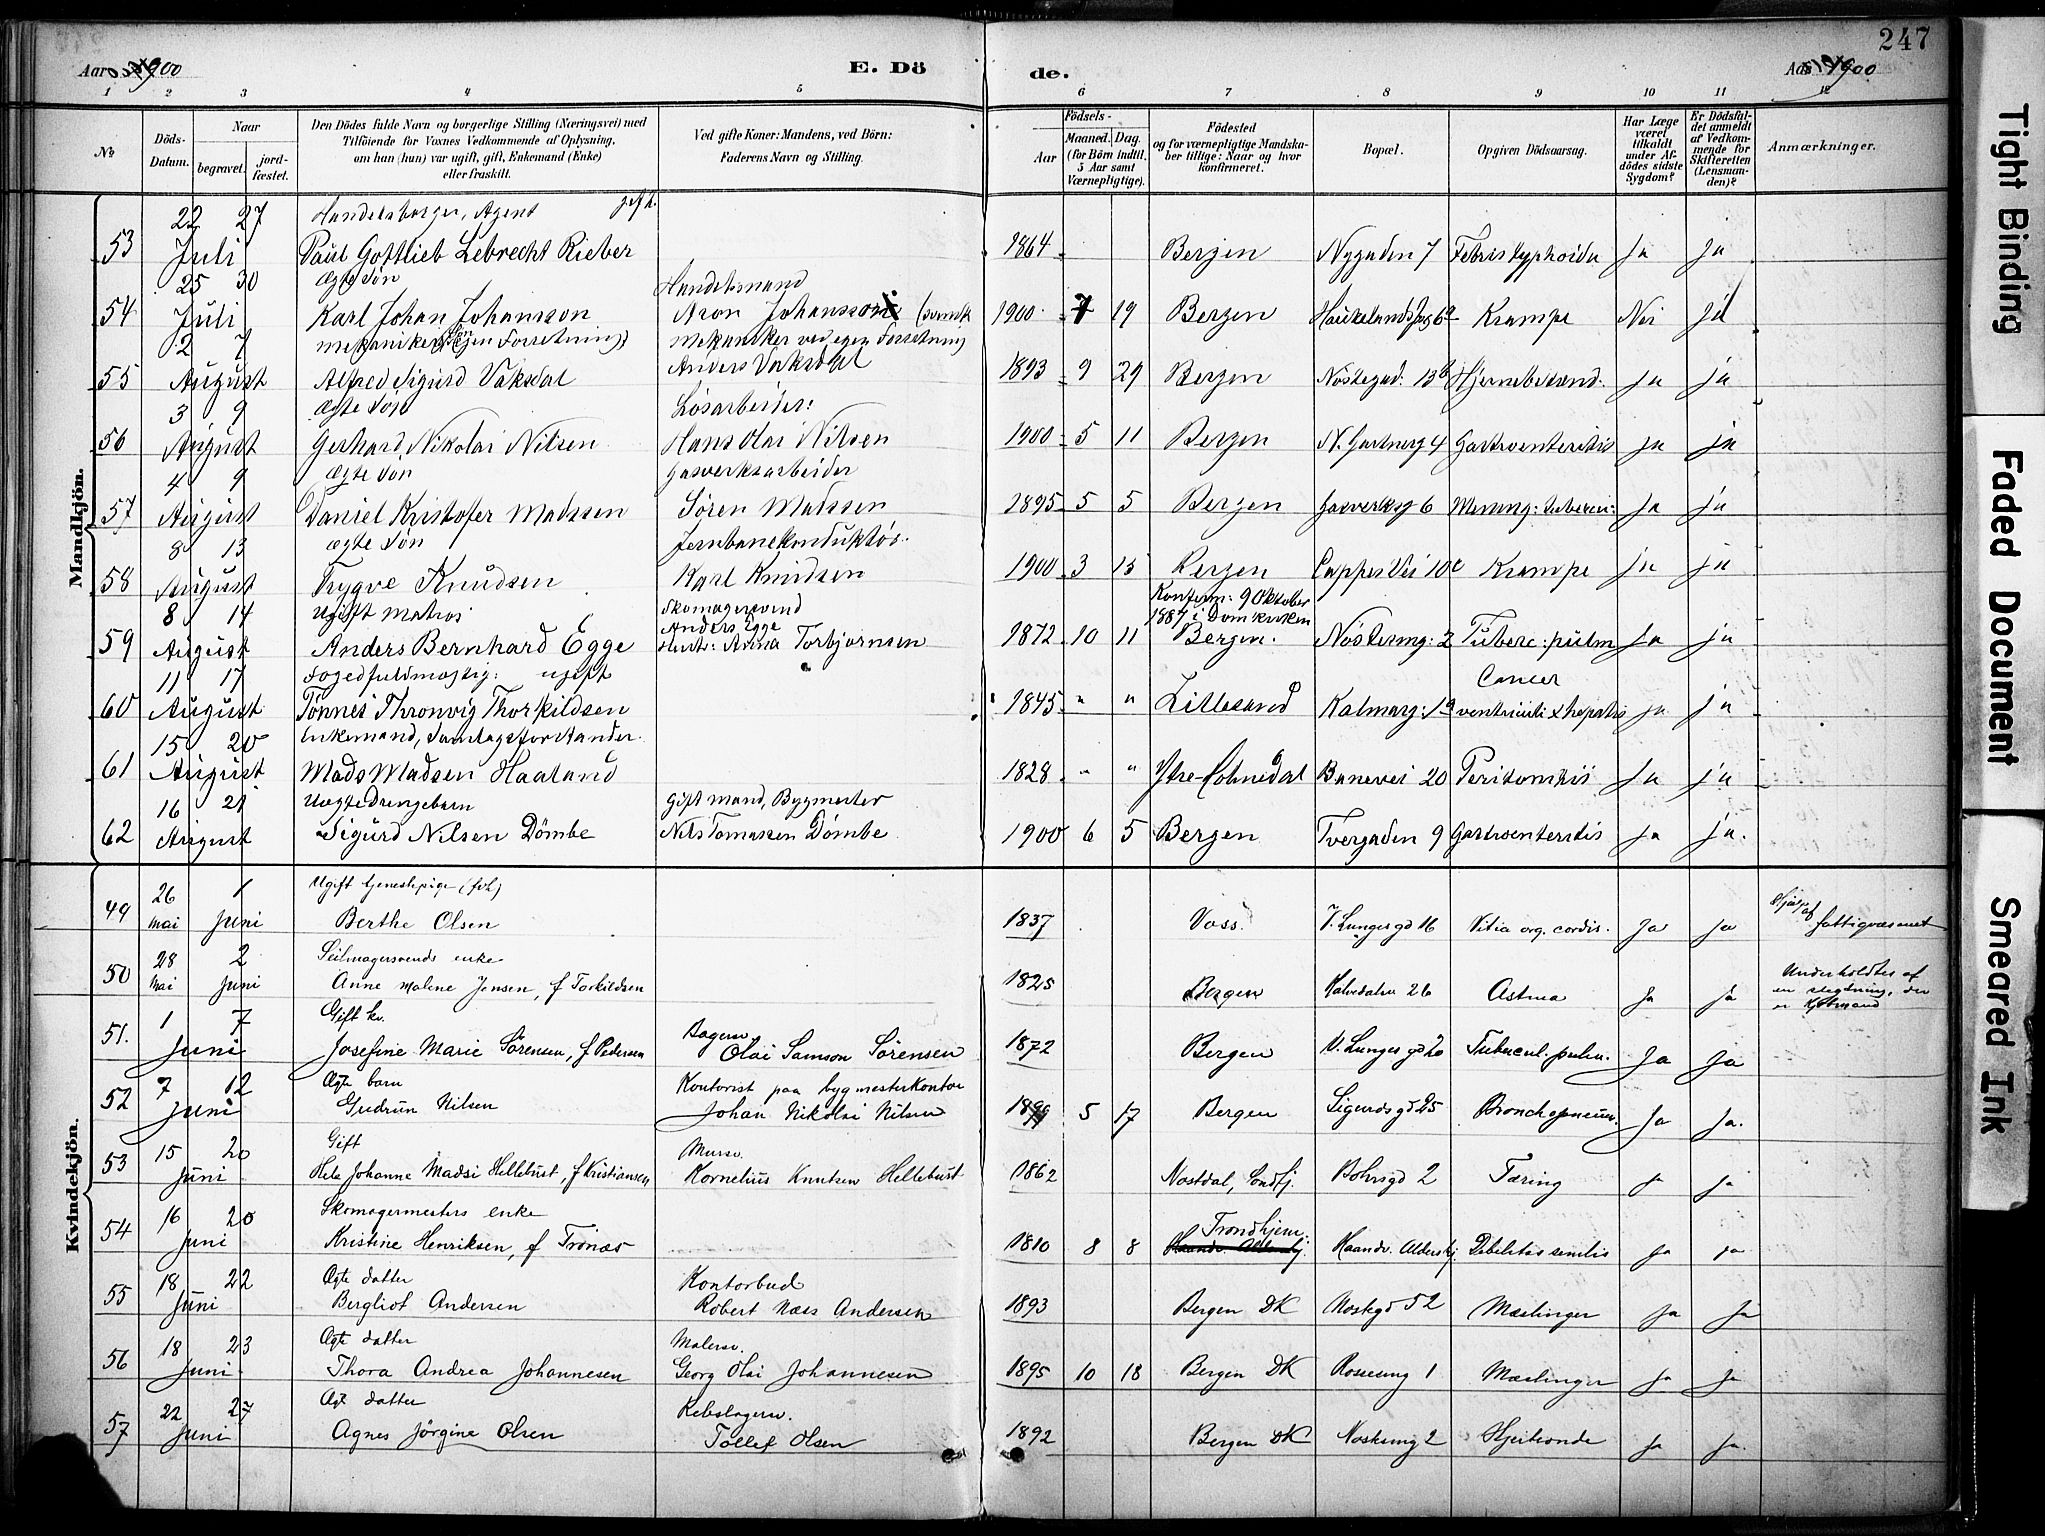 247
Aar 1900
E. Dö
de.
Aar 1900
1 2 3 4 5 6 7 8 9 10 11 12
No
Döds-Datum.
Naar
begravet.
jord-fæstet.
Den Dödes fulde Navn og borgerlige Stilling (Næringsvei) med
Tilföiende for Voxnes Vedkommende af Oplysning,
om han (hun) var ugift, gift, Enkemand (Enke)
eller fraskilt.
Ved gifte Koner: Mandens, ved Börn:
Faderens Navn og Stilling.
Födsels-
Aar
Maaned. Dag.
(for Börn indtil
5 Aar samt
Værnepligtige).
Födested
og for værnepligtige Mandska-
ber tillige: Naar og hvor
konfirmeret.
Bopæl.
Opgiven Dödsaarsag.
Har Læge
været
tilkaldt
under Af-
dödes sidste
Sygdom?
Er Dödsfal-
det anmeldt
af Vedkom-
mende for
Skifteretten
(Lensman-
den)?
Anmærkninger.
Mandkjön.
22 27 Handelsborger, Agent gift.
53 Juli Paul Gottlieb Lebrecht Rieber 1864 Bergen Nygaden 7 Febris typhoidea Ja Ja
25 30 Ægte Søn Handelsmand
54 Juli Karl Johan Johansson Aron Johansson (svensk 1900 7 19 Bergen Krampe Nei Ja
2 7 mekaniker Søn (egen Forretning) mekaniker ved egen Forretning
55 August Alfred Sigurd Vaksdal Anders Vaksdal 1893 9 29 Bergen Nöstegad: 13b Hjernebetænd. ja ja
3 9 Ægte Søn Løsarbeider:
56 August Gerhard Nikolai Nilsen Hans Olai Nilsen 1900 5 11 Bergen N. Gartnerg 4 Gastroenteritis ja ja
4 9 Ægte Søn Gasverksarbeider
57 August Daniel Kristofer Madssen Søren Madssen 1895 5 5 Bergen Gasverksg 6 Mening: tuberCu: ja ja
8 13 ægte Søn Jernbanekonduktør.
58 August Trygve Knudsen Karl Knudsen 1900 3 15 Bergen Cappes Vei 10c Krampe ja ja
8 14 Ugift Matros Skomagersvend Konferm: 9 Oktober
Anders Egge 1887 i Domkirken
59 August Anders Bernhard Egge Anna Torbjørnsen 1872 10 11 Bergen. Nöstesmg: 2 Tuberc: pulm Ja ja
11 17 Fogedfuldmægtig: ugift Cancer
60 August Tønnes Thronvig Thorkildsen 1845 " " Lillesand Kalmarg: 1a ventriculi & hepatis ja ja
15 20 Enkemand,
61 August Mads Madsen Haaland 1828 " " Ytre-Holmedal Banevei 20 Peritonitis Ja ja
16 21 Uægte Drengebarn Gift mand, Bygmester
62 August Sigurd Nilsen Dömbe Nils Tomassen Dömbe 1900 6 5 Bergen Tvergaden 9 Gastroenteritis ja ja.
Kvindekjön.
26 1 Ugift tjenestepige
49 mai juni Berthe Olsen 1837 Voss. V. Lungegd 16 Vitia org. cordis. Ja ja Hjulp. af fattigvæsenet
28 2 Seilmagersvends enke
50 Mai juni Anne Malene Jensen, f Torkildsen 1825 Bergen Kalvedalen 26 Astma Ja Ja Underholdtes af
en slegtning, der
er Kjøbmand
1 7 Gift kv. Bagersv.
51. Juni Josefine Marie Sörensen, f Pedersen Olai Samson Sörensen 1872 Bergen V. Lunges gd 20 Tubercul. pulm. Ja Ja
7 12 Ægte barn Kontorist paa bygmesterkontor
52 Juni Gudrun Nilsen Johan Nikolai Nilsen 1899 5 17 Bergen Sigurdsgd 25 Bronchopneum. Ja Ja.
15 20 Gift Mursv.
53 Juni Johanne Madsi Hellebust, f Kristiansen Kornelius Knutsen Hellebust 1862 Nostdal, Söndfj. Bohrsgd 2 Tæring Ja Ja
16 20 Skomagermesters enke Trondhjem.
54 Juni Kristine Henriksen, f Trönæs 1810 8 8 Haandv. Aldershj. Haandv. Aldershj. Debilitas senilis Ja ja
18 22 Ægte datter Kontorbud
55 Juni Bergliot Andersen Robert Næss Andersen 1893 Bergen DK Nostegd 52 Mæslinger Ja Ja
18 23 Ægte datter Malersv.
56 Juni Thora Andrea Johannesen Georg Olai Johannesen 1895 10 18 Bergen DK Rosesmg 1 Mæslinger Ja Ja
22 27 Ægt datter Rebslagersv.
57 Juni Agnes Jörgine Olsen Tollef Olsen 1892 Bergen DK Nostesmg 2 Hjerteonde Ja Ja.
Tight Binding
Faded Document
Smeared Ink